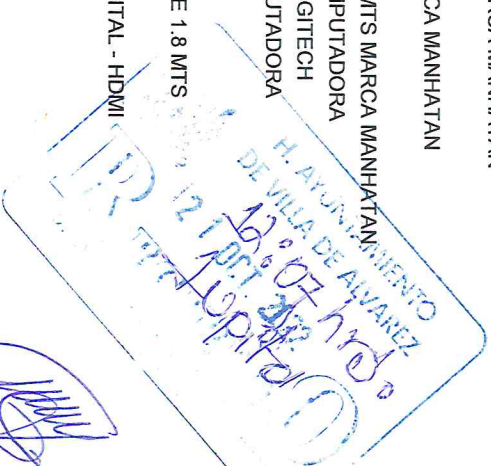 CA MANHATAN
MTS MARCA MANHATAN
PUTADORA
GITECH
UTADORA
E 1.8 MTS
ITAL - HDMI
H. AYUNTAMIENTO
DE VILLA DE ALVAREZ
12:07 hrs.
21 OCT
Lupita